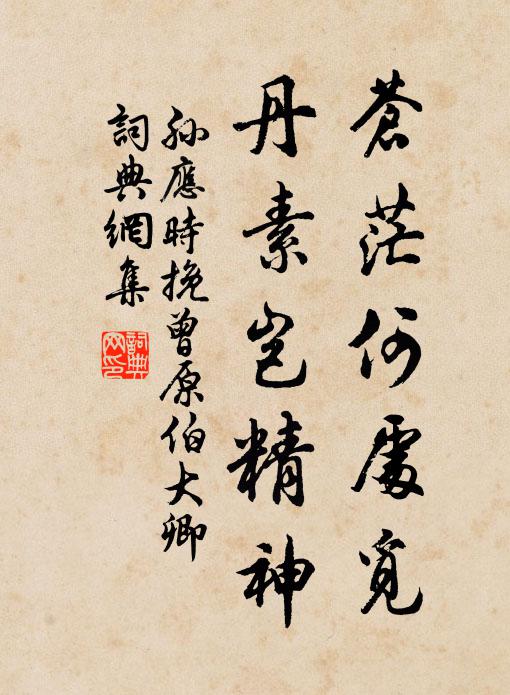 蒼茫何處覓
丹素豈精神
孫應時挽曾原伯大卿
詞典網集
詞典網印